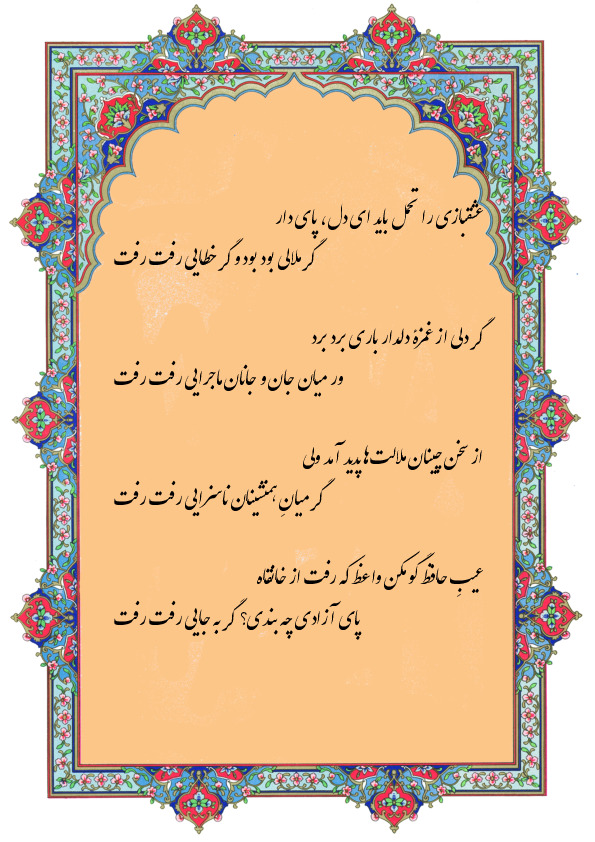 عشقبازی را تحمل باید ای دل، پای دار
گر ملالی بود بود و گر خطایی رفت رفت
گر دلی از غمزهٔ دلدار باری برد برد
ور میان جان و جانان ماجرایی رفت رفت
از سخن چینان ملالت‌ها پدید آمد ولی
گر میانِ همنشینان ناسزایی رفت رفت
عیبِ حافظ گو مکن واعظ که رفت از خانقاه
پای آزادی چه بندی؟ گر به جایی رفت رفت